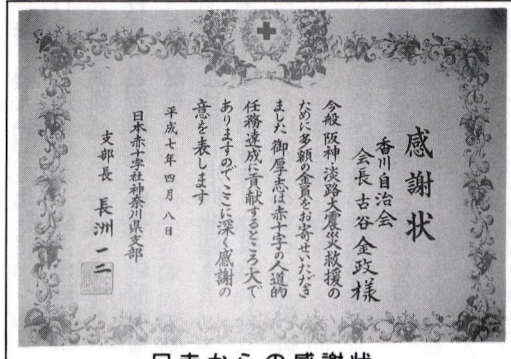 感謝状
香川自治会
会長 古谷金政様
今般阪神・淡路大震災救援の
ために多額の金員をお寄せいただき
ました 御厚志は赤十字の人道的
任務達成に貢献するところ大で
ありますので ここに深く感謝の
意を表します
平成七年四月八日
日本赤十字社神奈川県支部
支部長 長洲一二
日赤からの感謝状